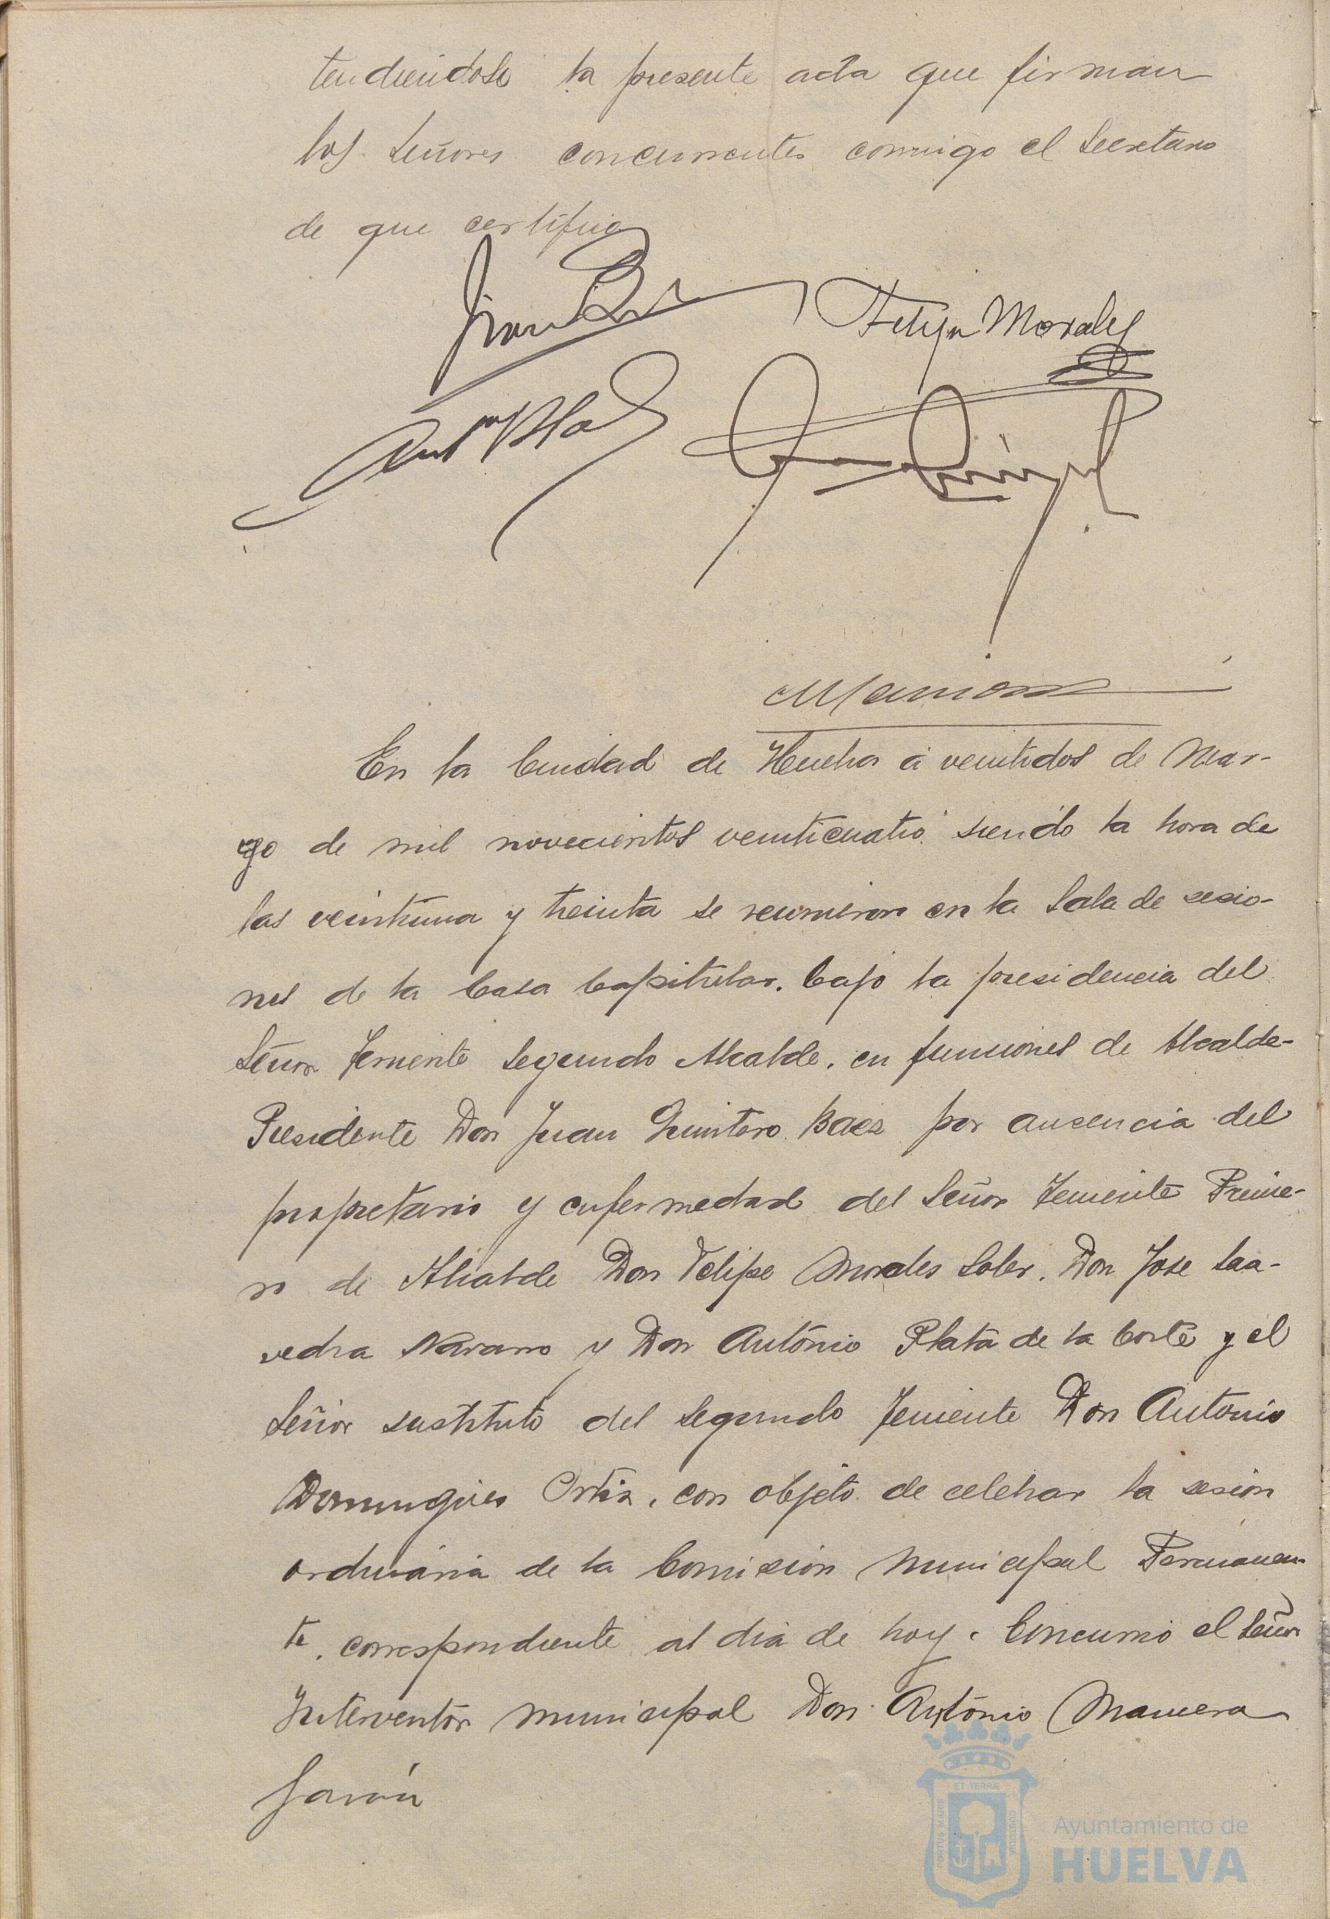 tendiendose la presente acta que firman
los Señores concurrentes conmigo el Secretario
de que certifico
Felipe Morales
Antº Plata
En la Ciudad de Huelva á veintidos de Mar-
zo de mil novecientos veinticuatro siendo la hora de
las veintiuna y treinta se reunieron en la Sala de sesio-
nes de la Casa Capitular, bajo la presidencia del
Señor Teniente Segundo Alcalde, en funciones de Alcalde-
Presidente Don Juan Quintero Baez por ausencia del
propietario y enfermedad del Señor Teniente Prime-
ro de Alcalde Don Felipe Morales Soler, Don Jose Saa-
vedra Navarro y Don Antonio Plata de la Corte y el
Señor sustituto del Segundo Teniente Don Antonio
Dominguez Ortiz, con objeto de celebrar la sesion
ordinaria de la Comision Municipal Permanen-
te, correspondiente al dia de hoy. Concurrio el Señor
Interventor municipal Don Antonio Manuera
ET TERRA
Ayuntamiento de
HUELVA